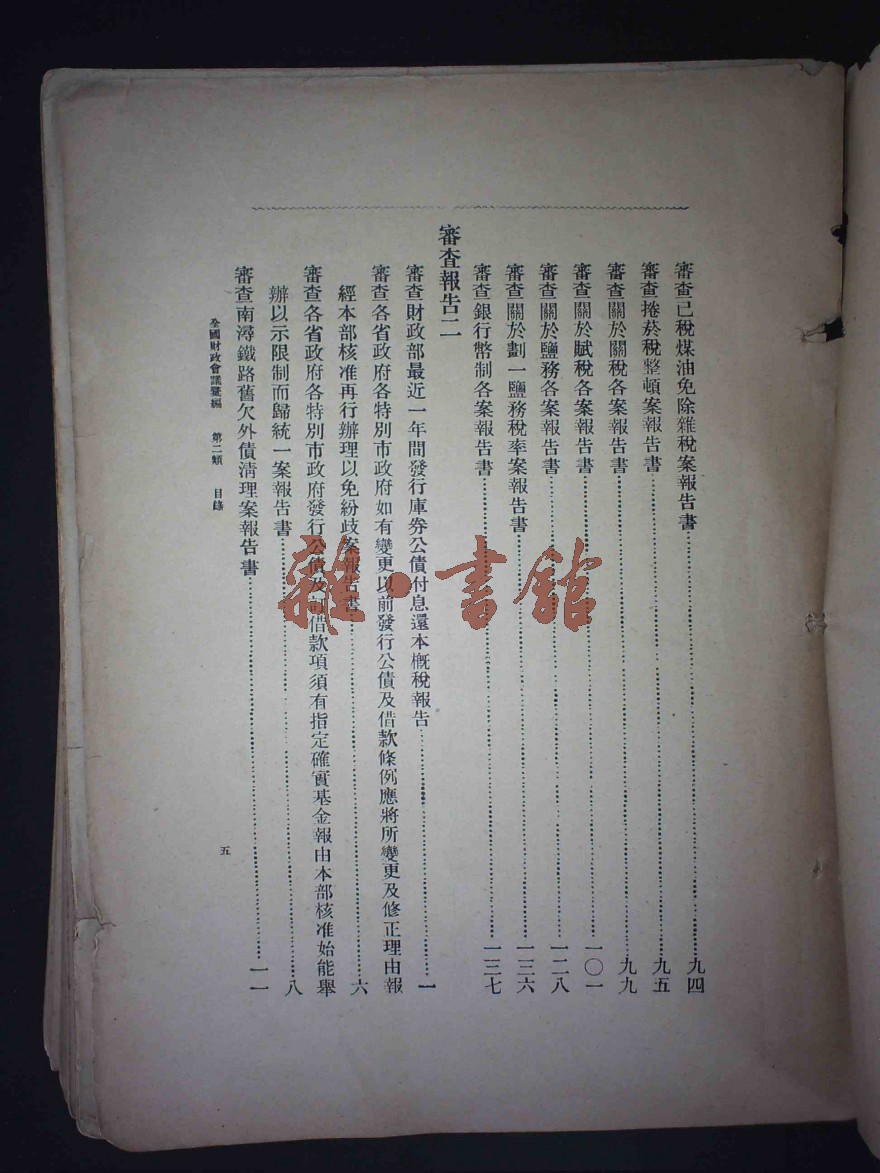 審查已稅煤油免除雜稅案報告書……九四
審查捲菸稅整頓案報告書……九五
審查關於關稅各案報告書……九九
審查關於賦稅各案報告書……一〇一
審查關於鹽務各案報告書……一二八
審查關於劃一鹽務稅率案報告書……一三六
審查銀行幣制各案報告書……一三七
審查報告二
審查財政部最近一年間發行庫券公債付息還本概稅報告……一
審查各省政府各特別市政府如有變更以前發行公債及借款條例應將所變更及修正理由報
經本部核准再行辦理以免紛歧案報告書……六
審查各省政府各特別市政府發行公債及訂借款項須有指定確實基金報由本部核准始能舉
辦以示限制而歸統一案報告書……八
審查南潯鐵路舊欠外債清理案報告書……一一
全國財政會議彙編 第二類 目錄
五
雜·書館